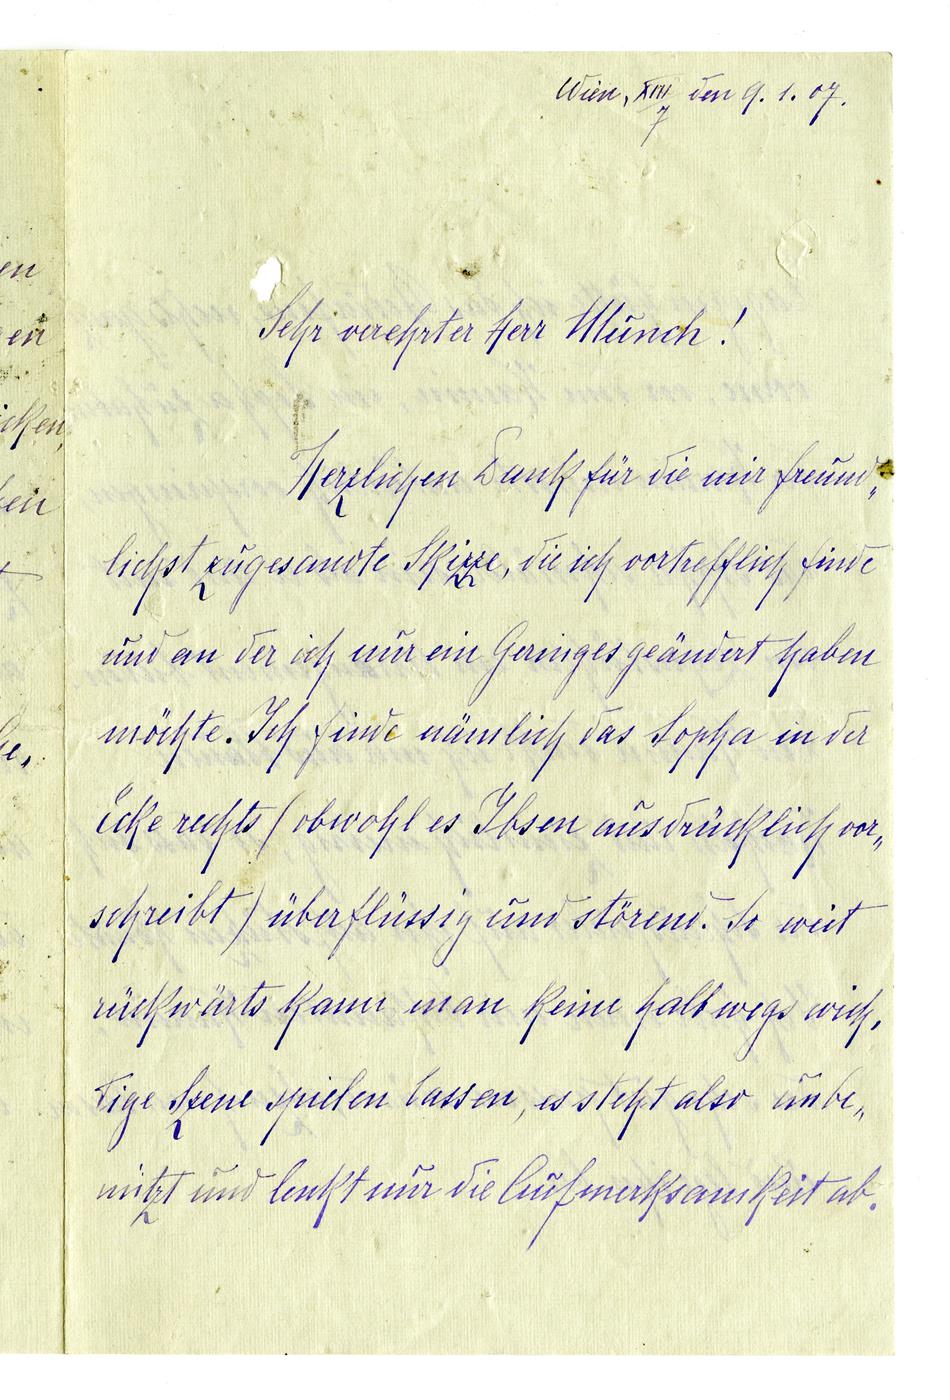 Wien, XIII/7 den 9. 1. 07.
Sehr verehrter Herr Munch!
Herzlichen Dank für die mir freund„
lichst zugesandte Skizze, die ich vortrefflich finde
und an der ich nur ein Geringes geändert haben
möchte. Ich finde nämlich das Sopha in der
Ecke rechts (obwohl es Ibsen ausdrücklich vor„
schreibt) überflüssig und störend. So weit
rückwärts kann man keine halbwegs wich„
tige Szene spielen lassen, es steht also unbe„
nützt und lenkt nur die Aufmerksamkeit ab.
en
en
icken,
en
t